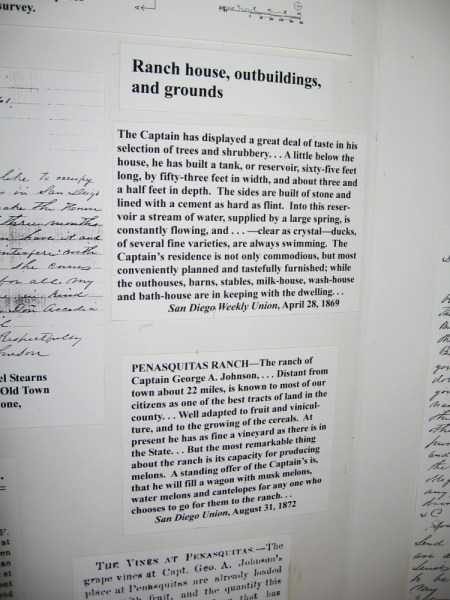 survey.
Ranch house, outbuildings,
and grounds
The Captain has displayed a great deal of taste in his
selection of trees and shrubbery. . . A little below the
house, he has built a tank, or reservoir, sixty-five feet
long, by fifty-three feet in width, and about three and
a half feet in depth. The sides are built of stone and
lined with a cement as hard as flint. Into this reser-
voir a stream of water, supplied by a large spring, is
constantly flowing, and . . . —clear as crystal—ducks,
of several fine varieties, are always swimming. The
Captain's residence is not only commodious, but most
conveniently planned and tastefully furnished; while
the outhouses, barns, stables, milk-house, wash-house
and bath-house are in keeping with the dwelling. . .
San Diego Weekly Union, April 28, 1869
PENASQUITAS RANCH—The ranch of
Captain George A. Johnson, . . . Distant from
town about 22 miles, is known to most of our
citizens as one of the best tracts of land in the
county. . . Well adapted to fruit and vinicul-
ture, and to the growing of the cereals. At
present he has as fine a vineyard as there is in
the State. . . But the most remarkable thing
about the ranch is its capacity for producing
melons. A standing offer of the Captain's is,
that he will fill a wagon with musk melons,
water melons and cantelopes for any one who
chooses to go for them to the ranch. . .
San Diego Union, August 31, 1872
THE VINES AT PENASQUITAS.—The
grape vines at Capt. Geo. A. Johnson's
place at Penasquitas are already loaded
with fruit, and the quantity this
that has
like to occupy
in San Diego
take the House
three months
have it and
interfere with
she comes
for all my
kind
San Arcadia
Respectfully
el Stearns
Old Town
tone,